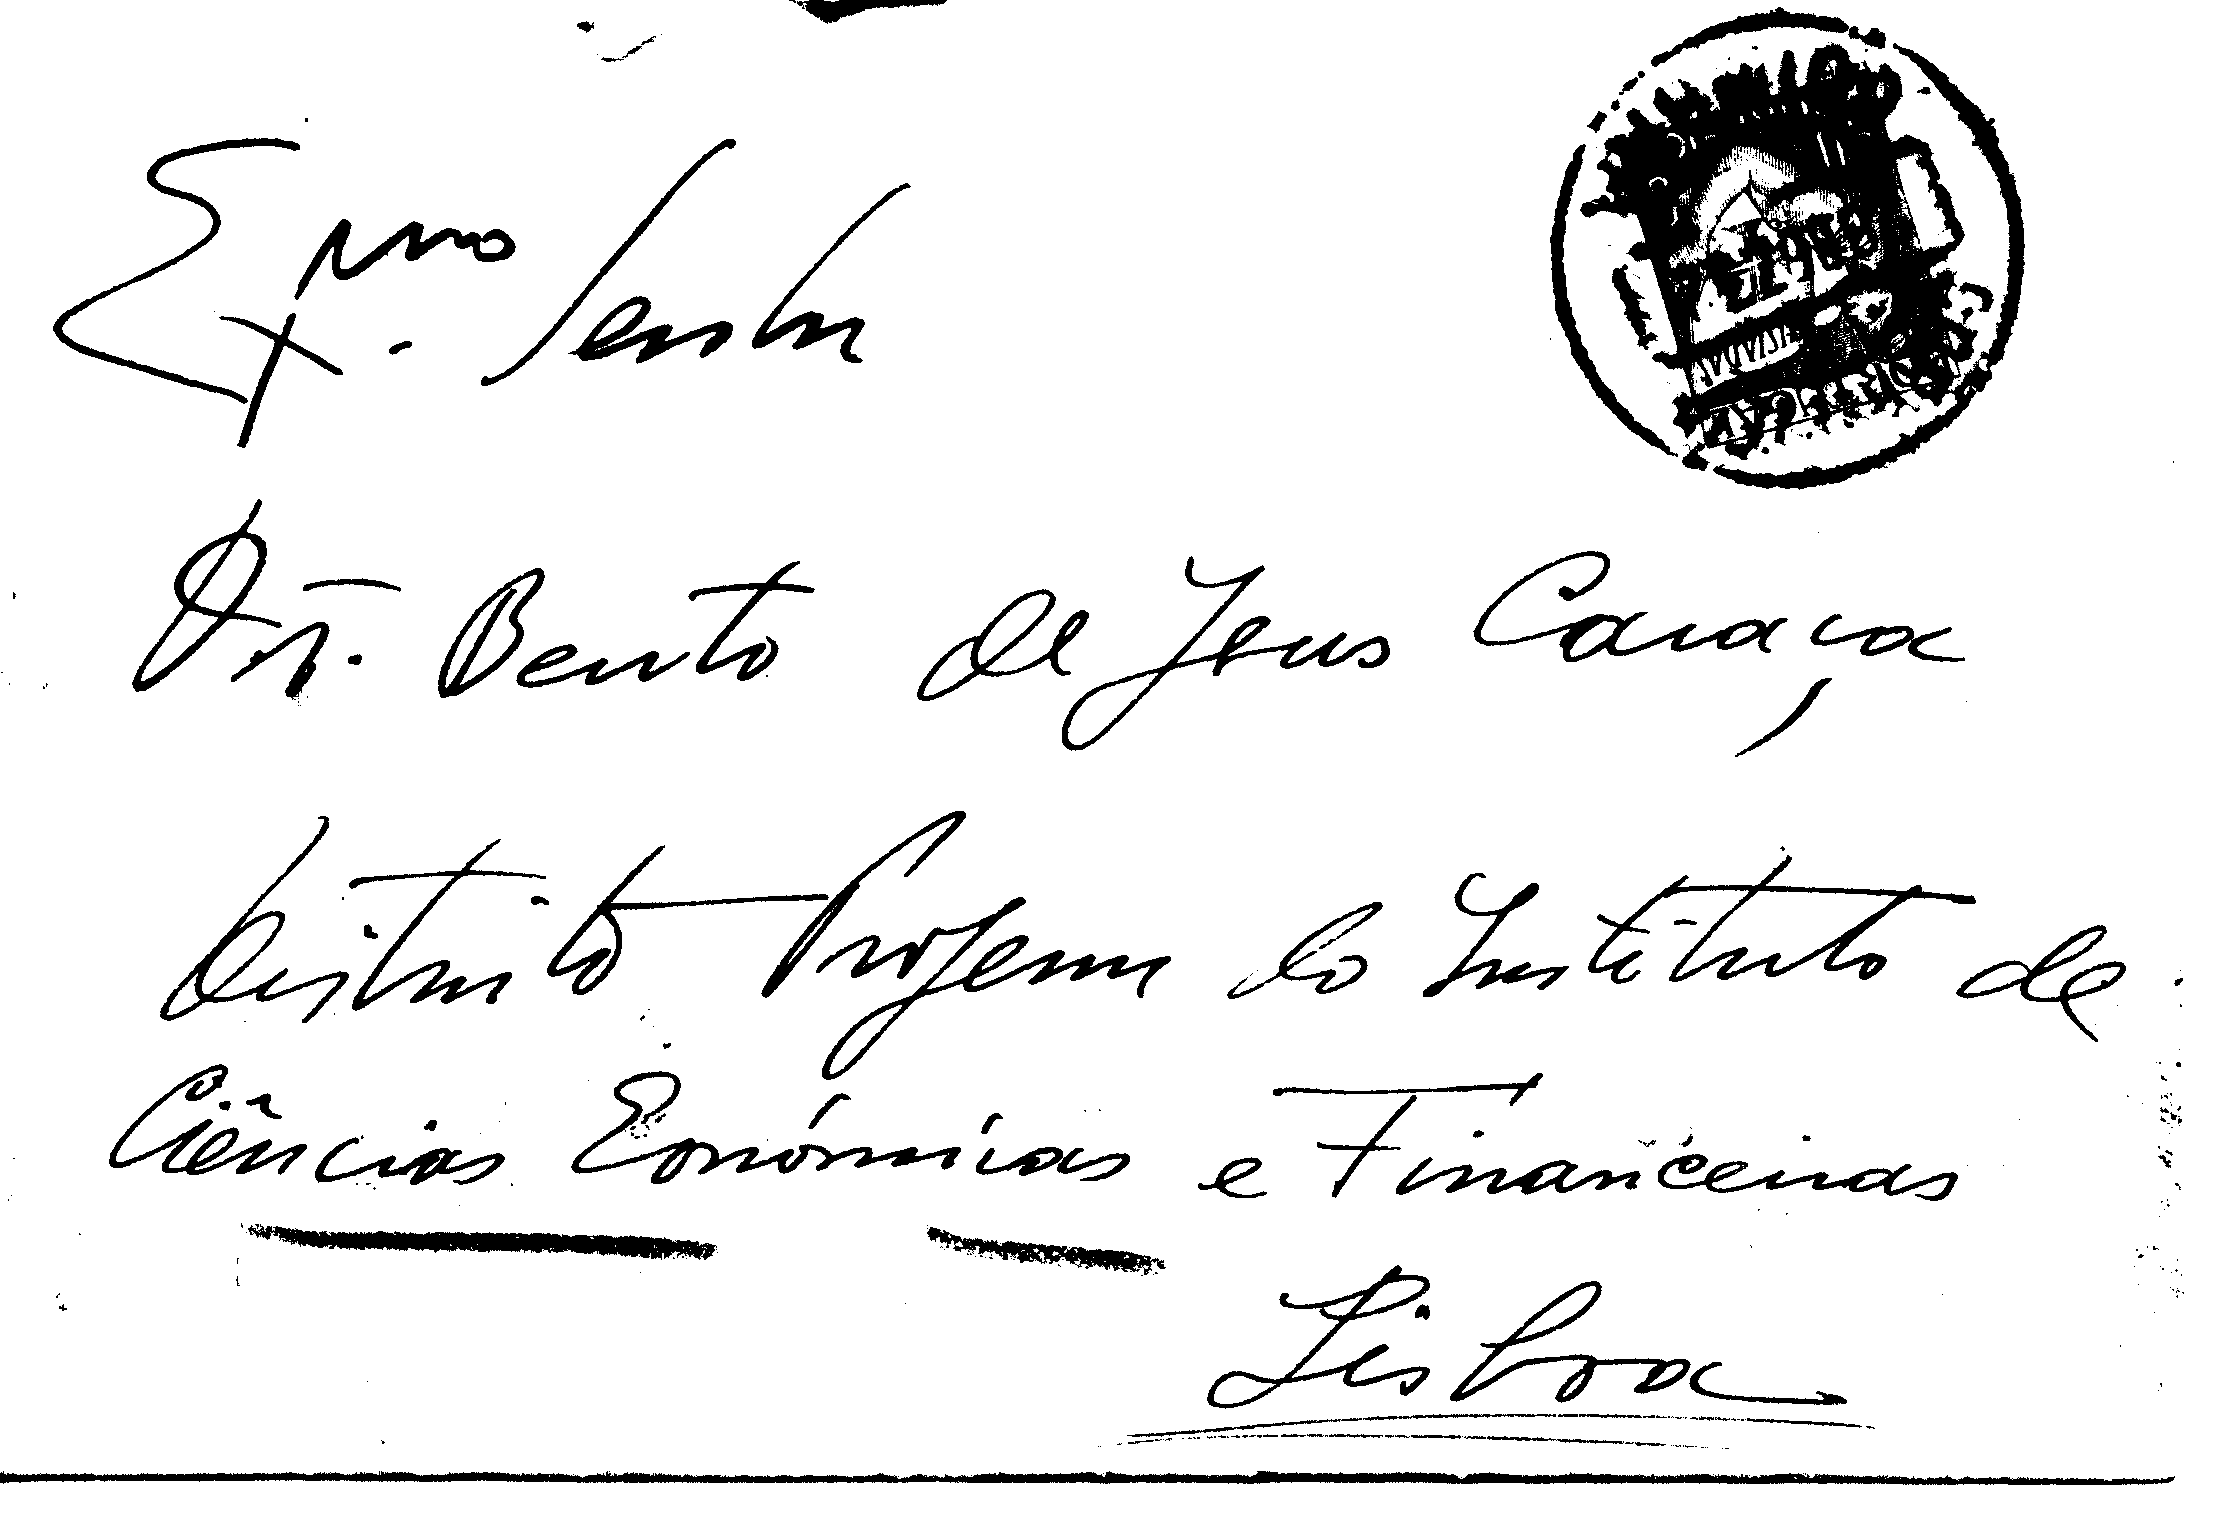 Exmo. Senhor
Dr. Bento de Jesus Caraça,
distinto Professor do Instituto de
Ciências Económicas e Financeiras
Lisboa